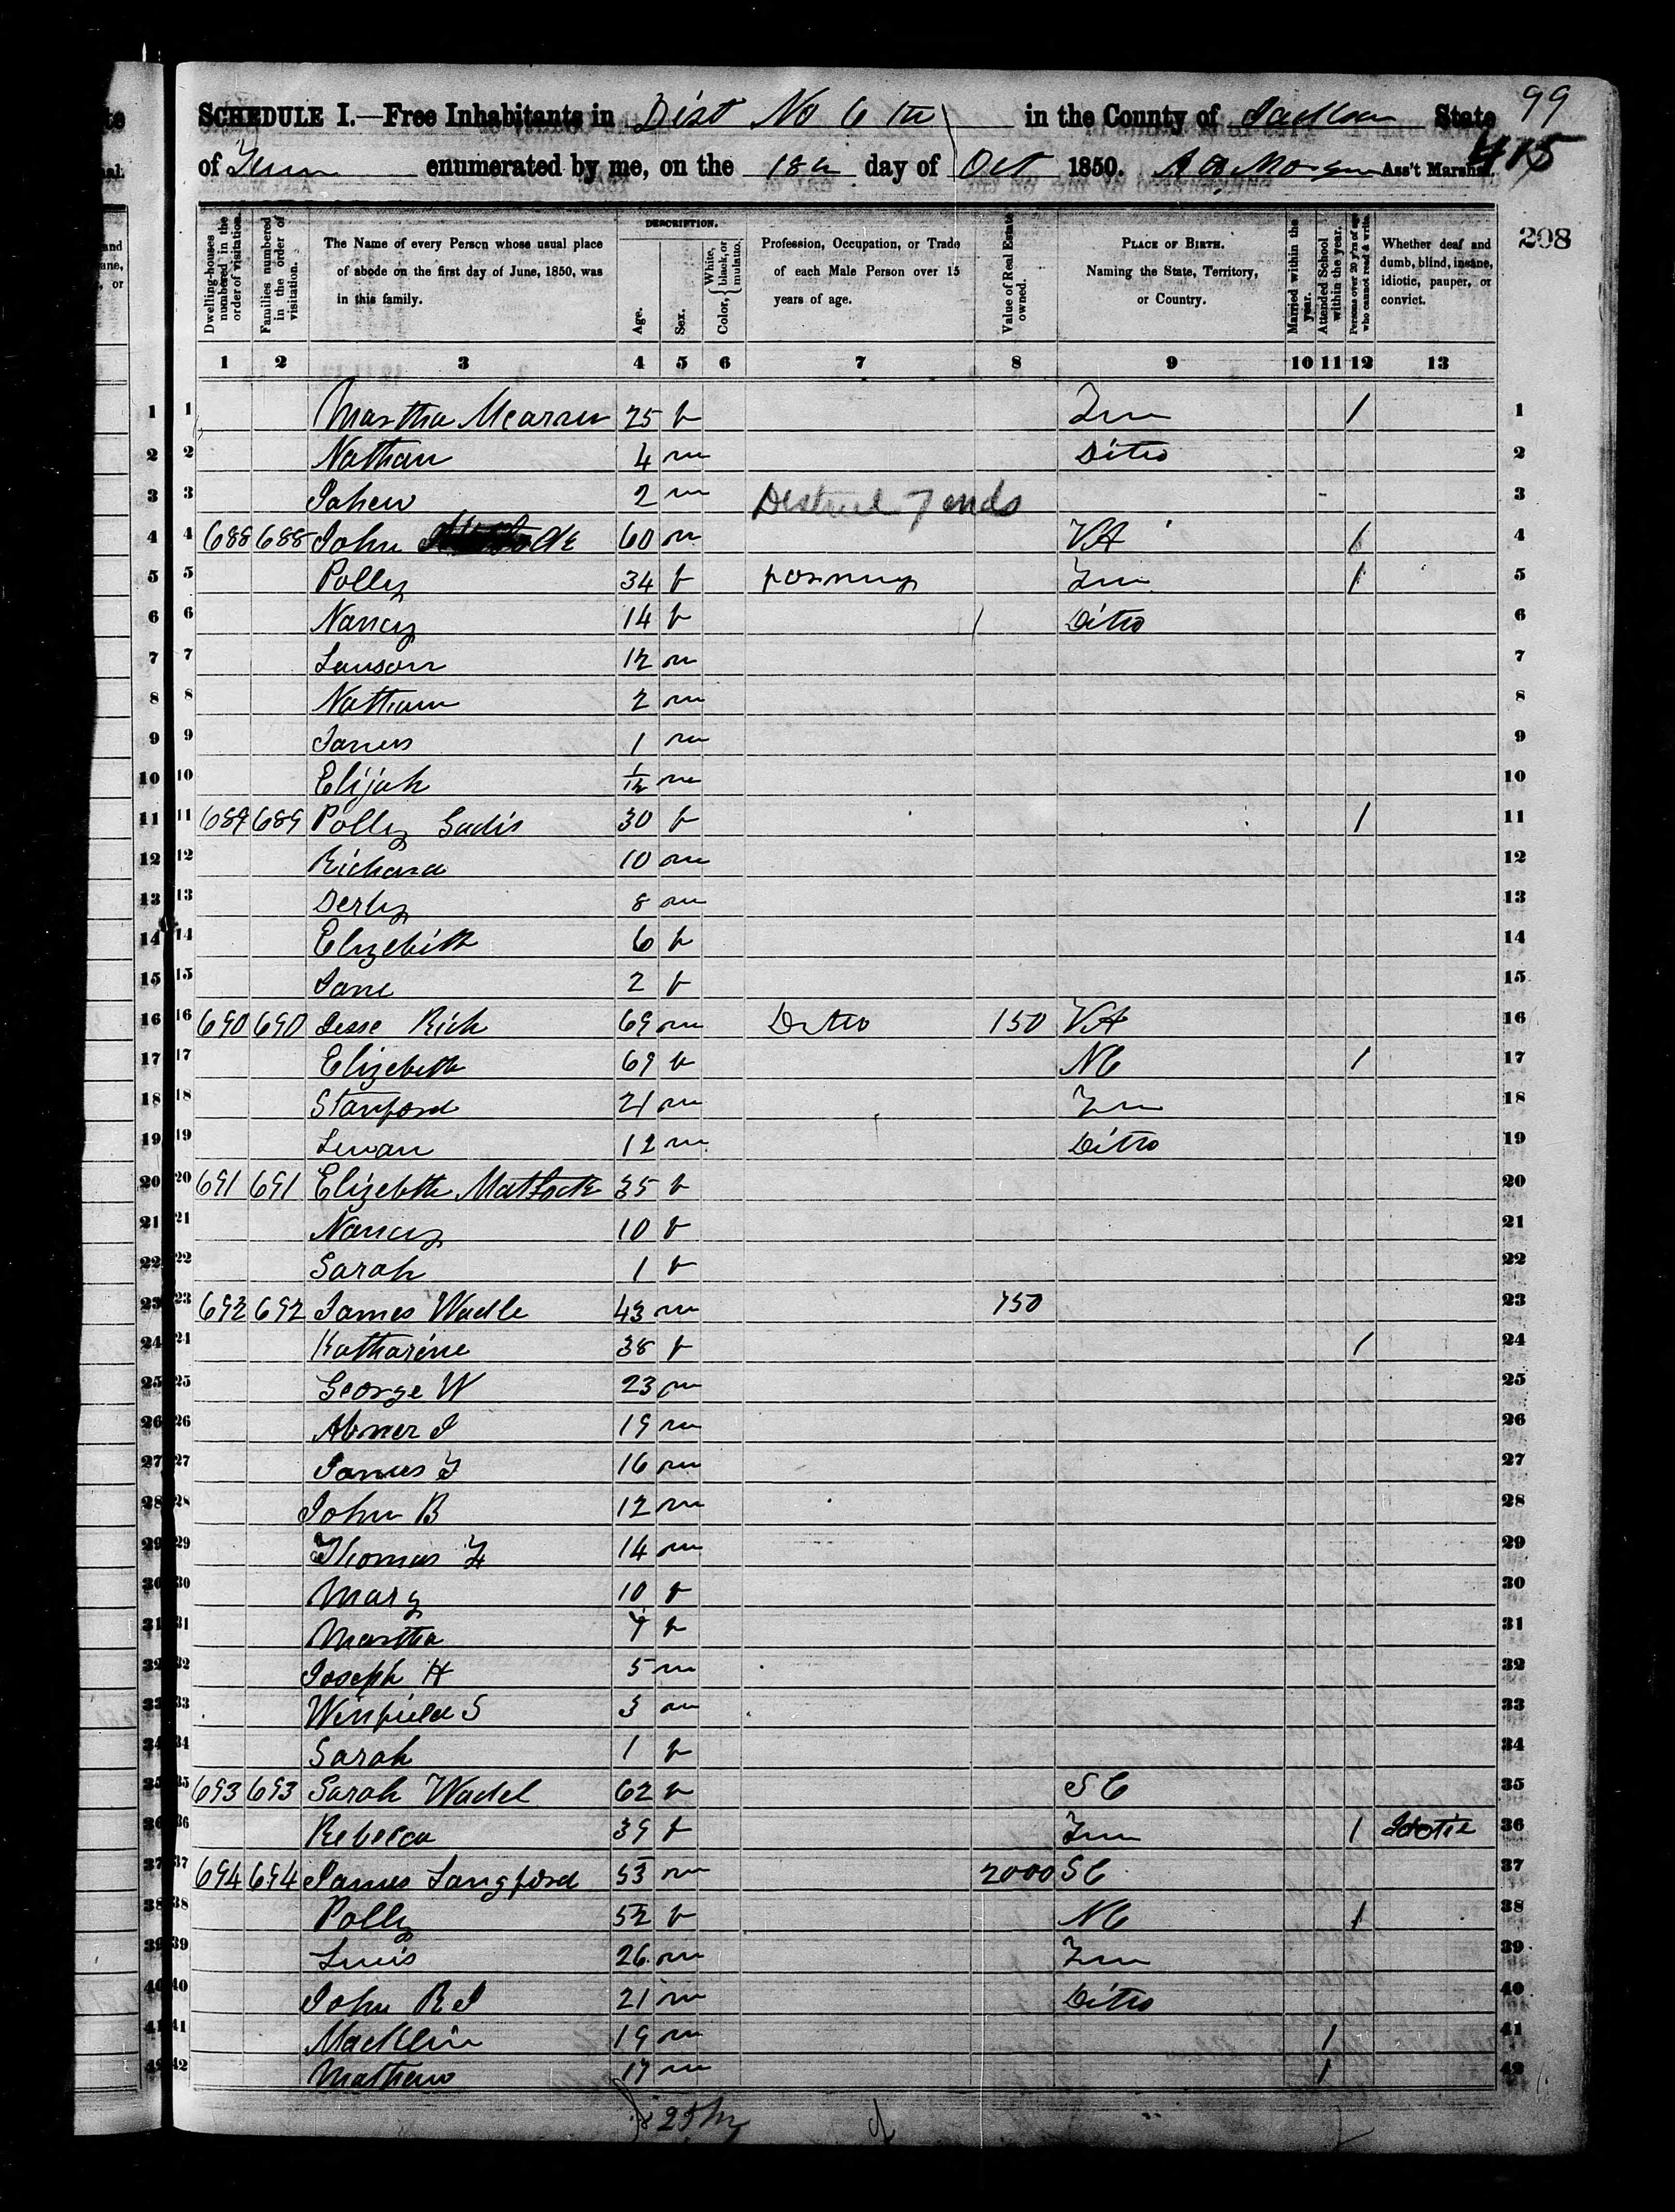 99
SCHEDULE I.—Free Inhabitants in Dist No 6 in the County of Jackson State
of Tenn enumerated by me, on the 18th day of Oct 1850. Morgan Ass't Marshal. 415
208
DESCRIPTION.
Dwelling-houses numbered in the order of visitation.
Families numbered in the order of visitation.
The Name of every Person whose usual place of abode on the first day of June, 1850, was in this family.
Age.
Sex.
Color, White, black, or mulatto.
Profession, Occupation, or Trade of each Male Person over 15 years of age.
Value of Real Estate owned.
PLACE OF BIRTH. Naming the State, Territory, or Country.
Married within the year.
Attended School within the year.
Persons over 20 y'rs of age who cannot read & write.
Whether deaf and dumb, blind, insane, idiotic, pauper, or convict.
1 2 3 4 5 6 7 8 9 10 11 12 13
1 Martha 25 f Tenn 1 1
2 Nathan 4 m Ditto 2
3 2 m District 7 ends 3
4 688 688 John 60 m VA 1 4
5 Polly 34 f Tenn 1 5
6 Nancy 14 f Ditto 6
7 Lauson 12 m 7
8 Nathan 2 m 8
9 James 1 m 9
10 Elijah 1/12 m 10
11 689 689 Polly Gadis 30 f 1 11
12 Richard 10 m 12
13 Derly 8 m 13
14 Elizebeth 6 f 14
15 Jane 2 f 15
16 690 690 Jesse Rich 69 m Ditto 150 VA 16
17 Elizebeth 69 f NC 1 17
18 Stanford 21 m Tenn 18
19 12 m Ditto 19
20 691 691 Elizebeth Matlock 35 f 20
21 Nancy 10 f 21
22 Sarah 1 f 22
23 692 692 James Wadle 43 m 750 23
24 Katharine 38 f 1 24
25 George W 23 m 25
26 Abner J 19 m 26
27 James T 16 m 27
28 John B 12 m 28
29 Thomas 14 m 29
30 Mary 10 f 30
31 Martha 7 f 31
32 Joseph H 5 m 32
33 Winfield S 3 m 33
34 Sarah 1 f 34
35 693 693 Sarah Wadel 62 f SC 35
36 Rebecca 39 f Tenn 1 Idotic 36
37 694 694 James Langford 53 m 2000 SC 37
38 Polly 52 f NC 1 38
39 Lewis 26 m Tenn 39
40 John R J 21 m Ditto 40
41 Macklin 19 m 1 41
42 Mathew 17 m 1 42